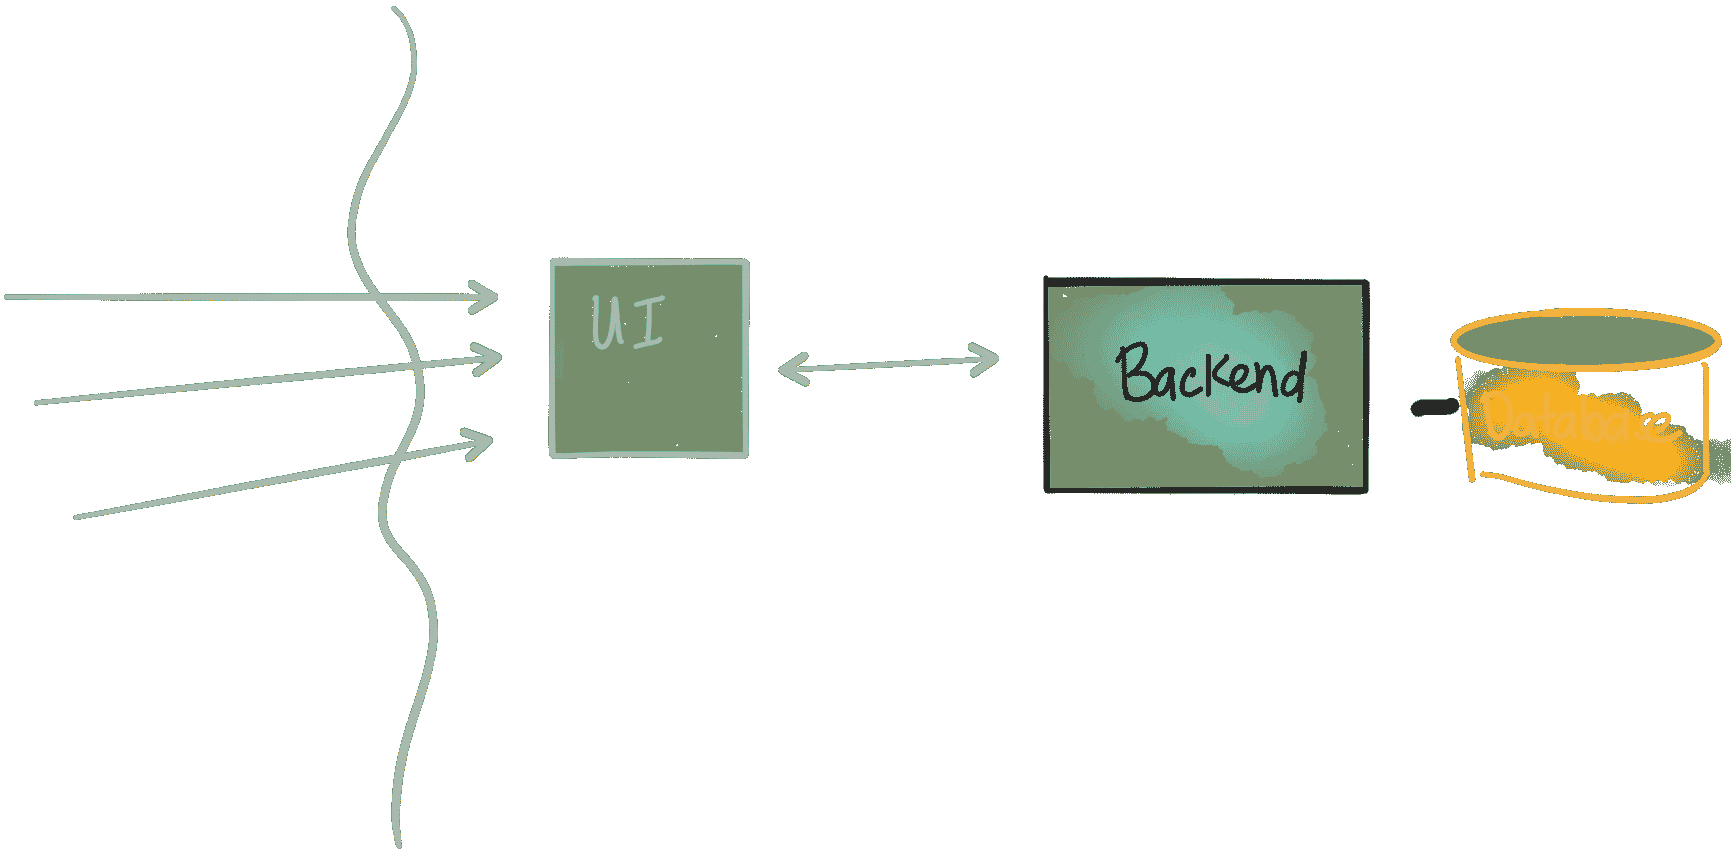 UI
Backend
Database